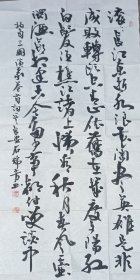 滚滚长江东逝水浪花淘尽英雄是非
成败转头空青山依旧在几度夕阳红
白发渔樵江渚上惯看秋月春风一壶
浊酒喜相逢古今多少事都付笑谈中